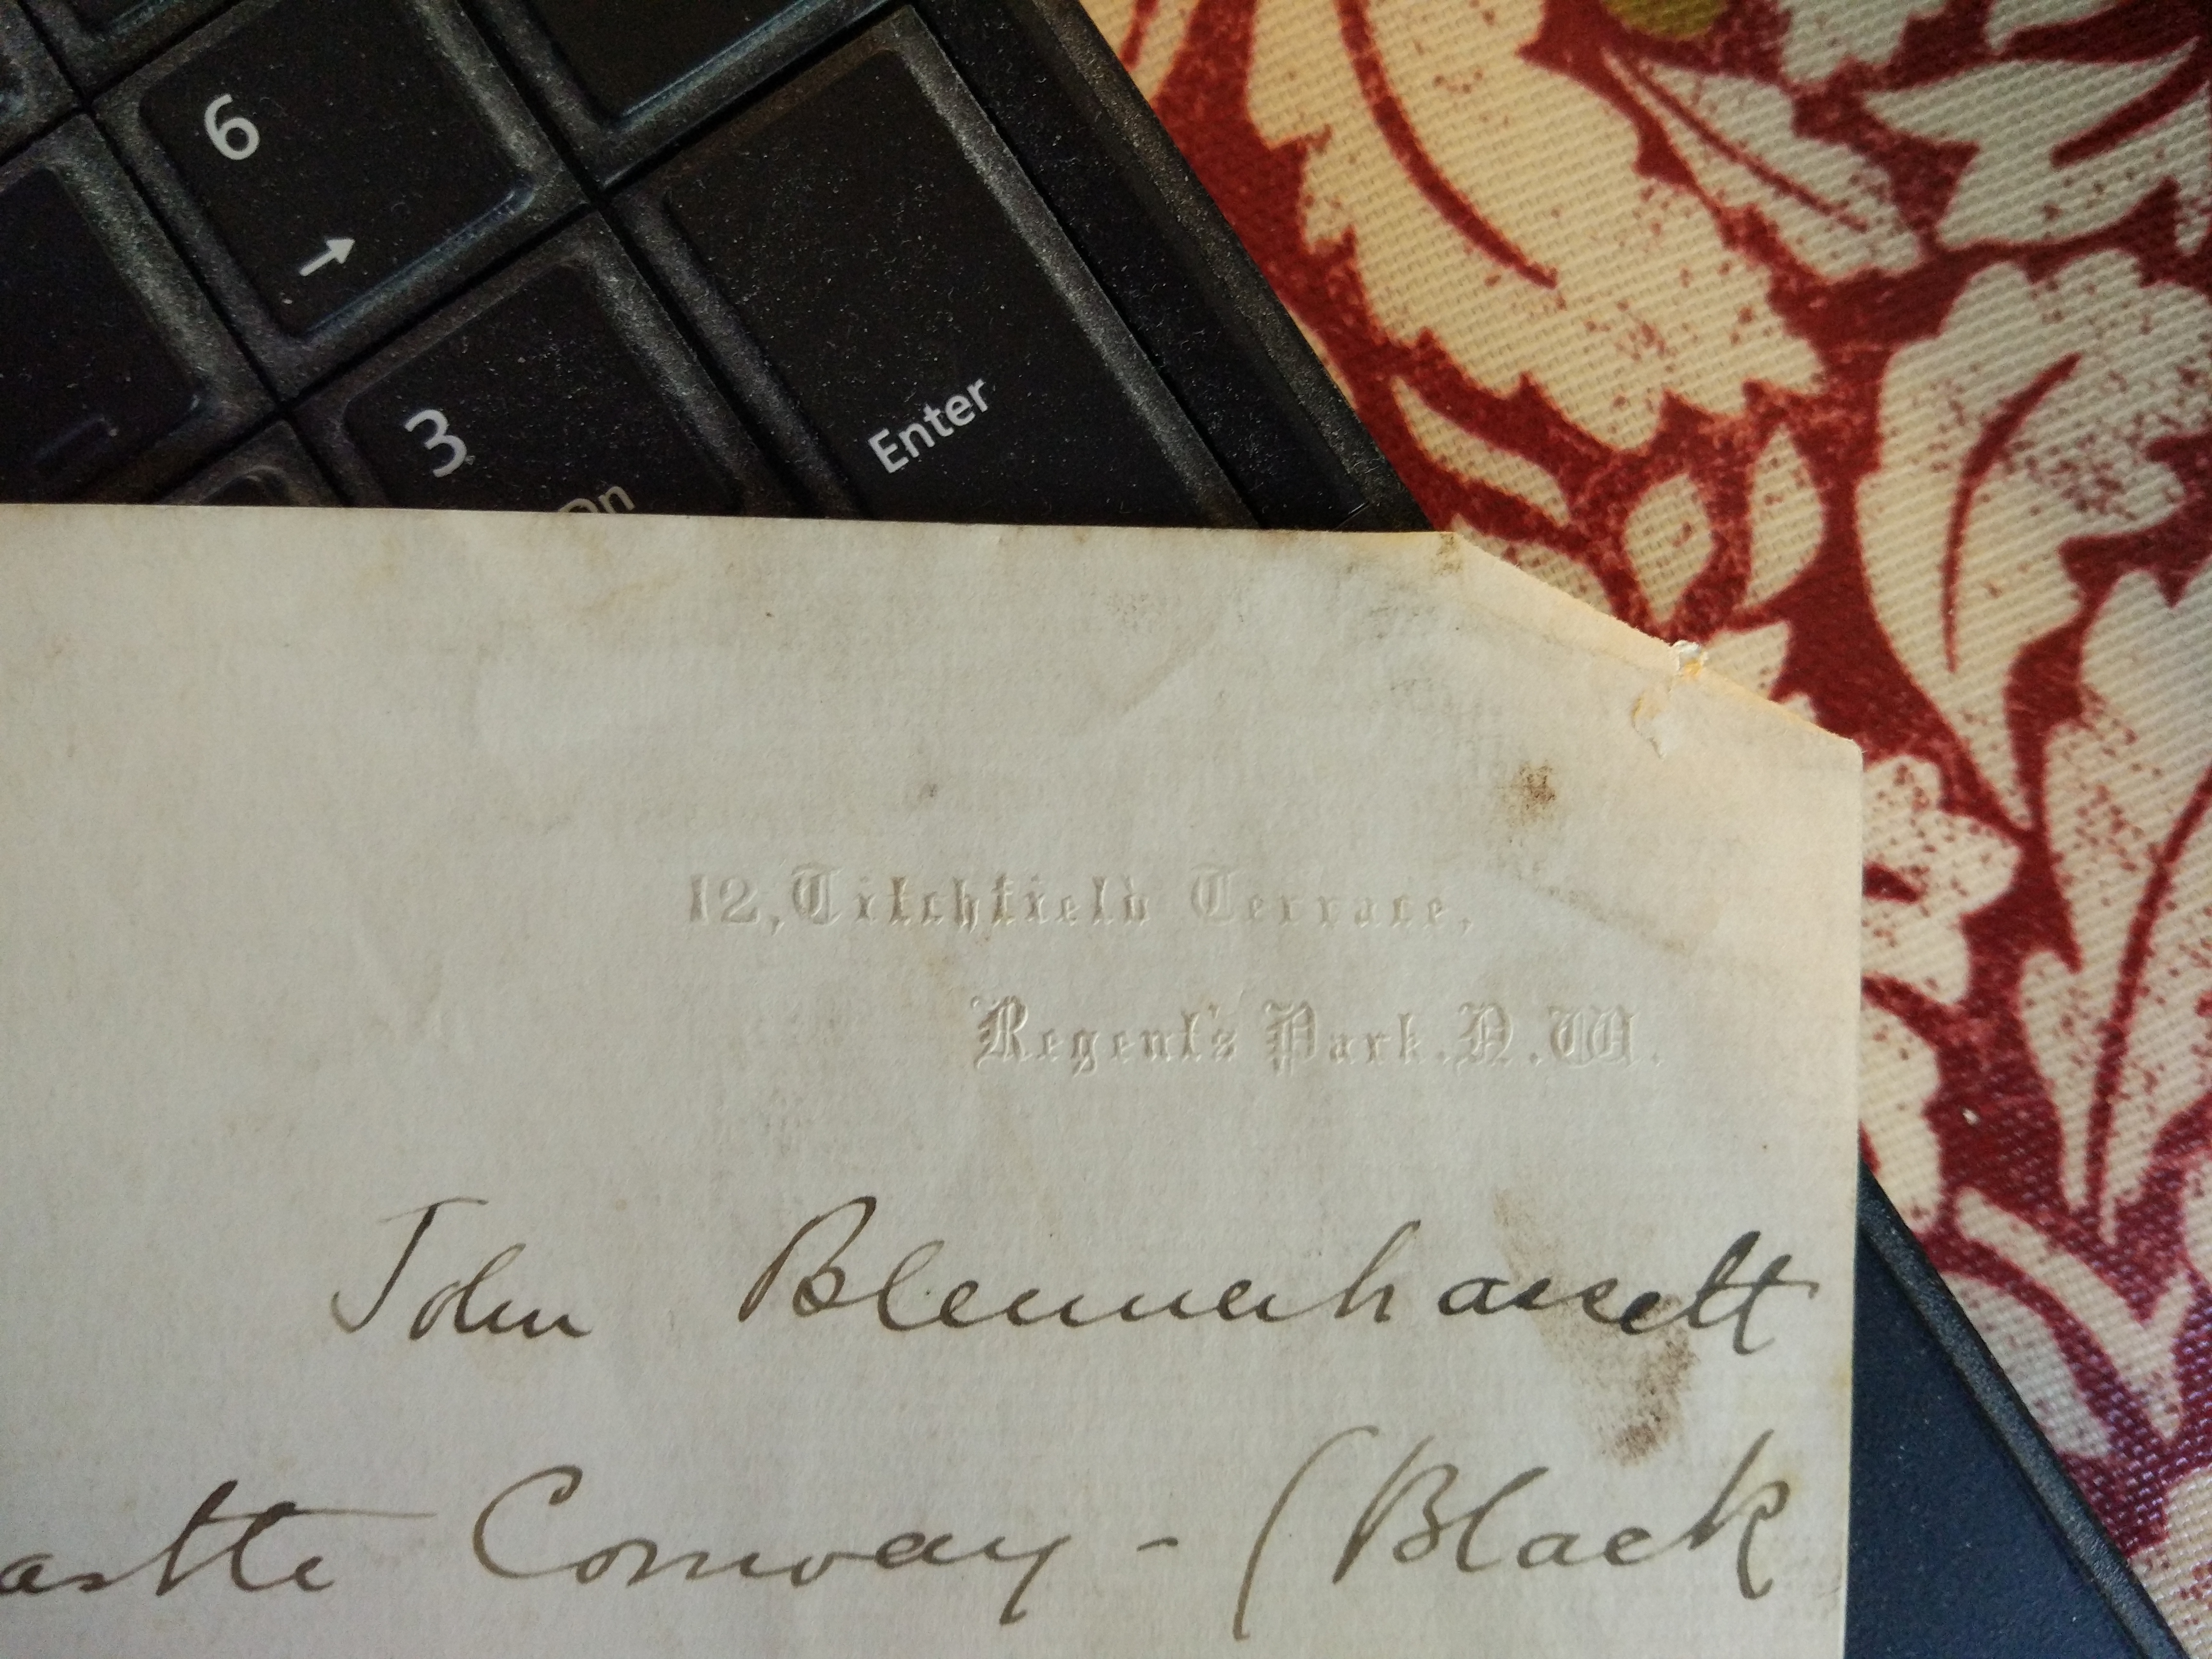 6
→
3
Enter
On
12, Titchfield Terrace,
Regent's Park. N.W.
John Blennerhassett
astle Conway - (Black